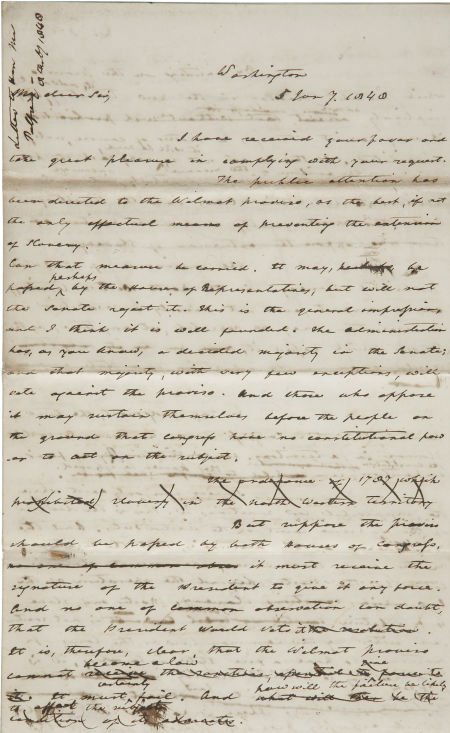 Letter to Hon Mr
Jan 7, 1848
Washington
My dear Sir,
5 Jan 7. 1848
I have received your favor and
take great pleasure in complying with your request.
The public attention has
been directed to the Wilmot proviso, as the best, if not
the only effectual means of preventing the extension
of slavery.
Can that measure be carried. It may, be
perhaps
passed, by the House of Representatives; but will not
the Senate reject it. This is the general impression,
and I think it is well founded. The Administration
has, as you know, a decided majority in the Senate;
and that majority, with very few exceptions, will
vote against the proviso. And those who oppose
it may sustain themselves before the people on
the ground that Congress have no constitutional pow
er to act on the subject.
the ordinance of 1787 which
prohibited slavery in the North Western territory
But suppose the proviso
should be passed by both Houses of Congress,
no one of common obser it must receive the
signature of the President to give it any force.
And no one of common observation can doubt,
that the President would veto the resolution.
It is, therefore, clear, that the Wilmot proviso
become a law
cannot receive the
certainly
It must fail. And what will be the
how will the be likely
to affect the
condition of